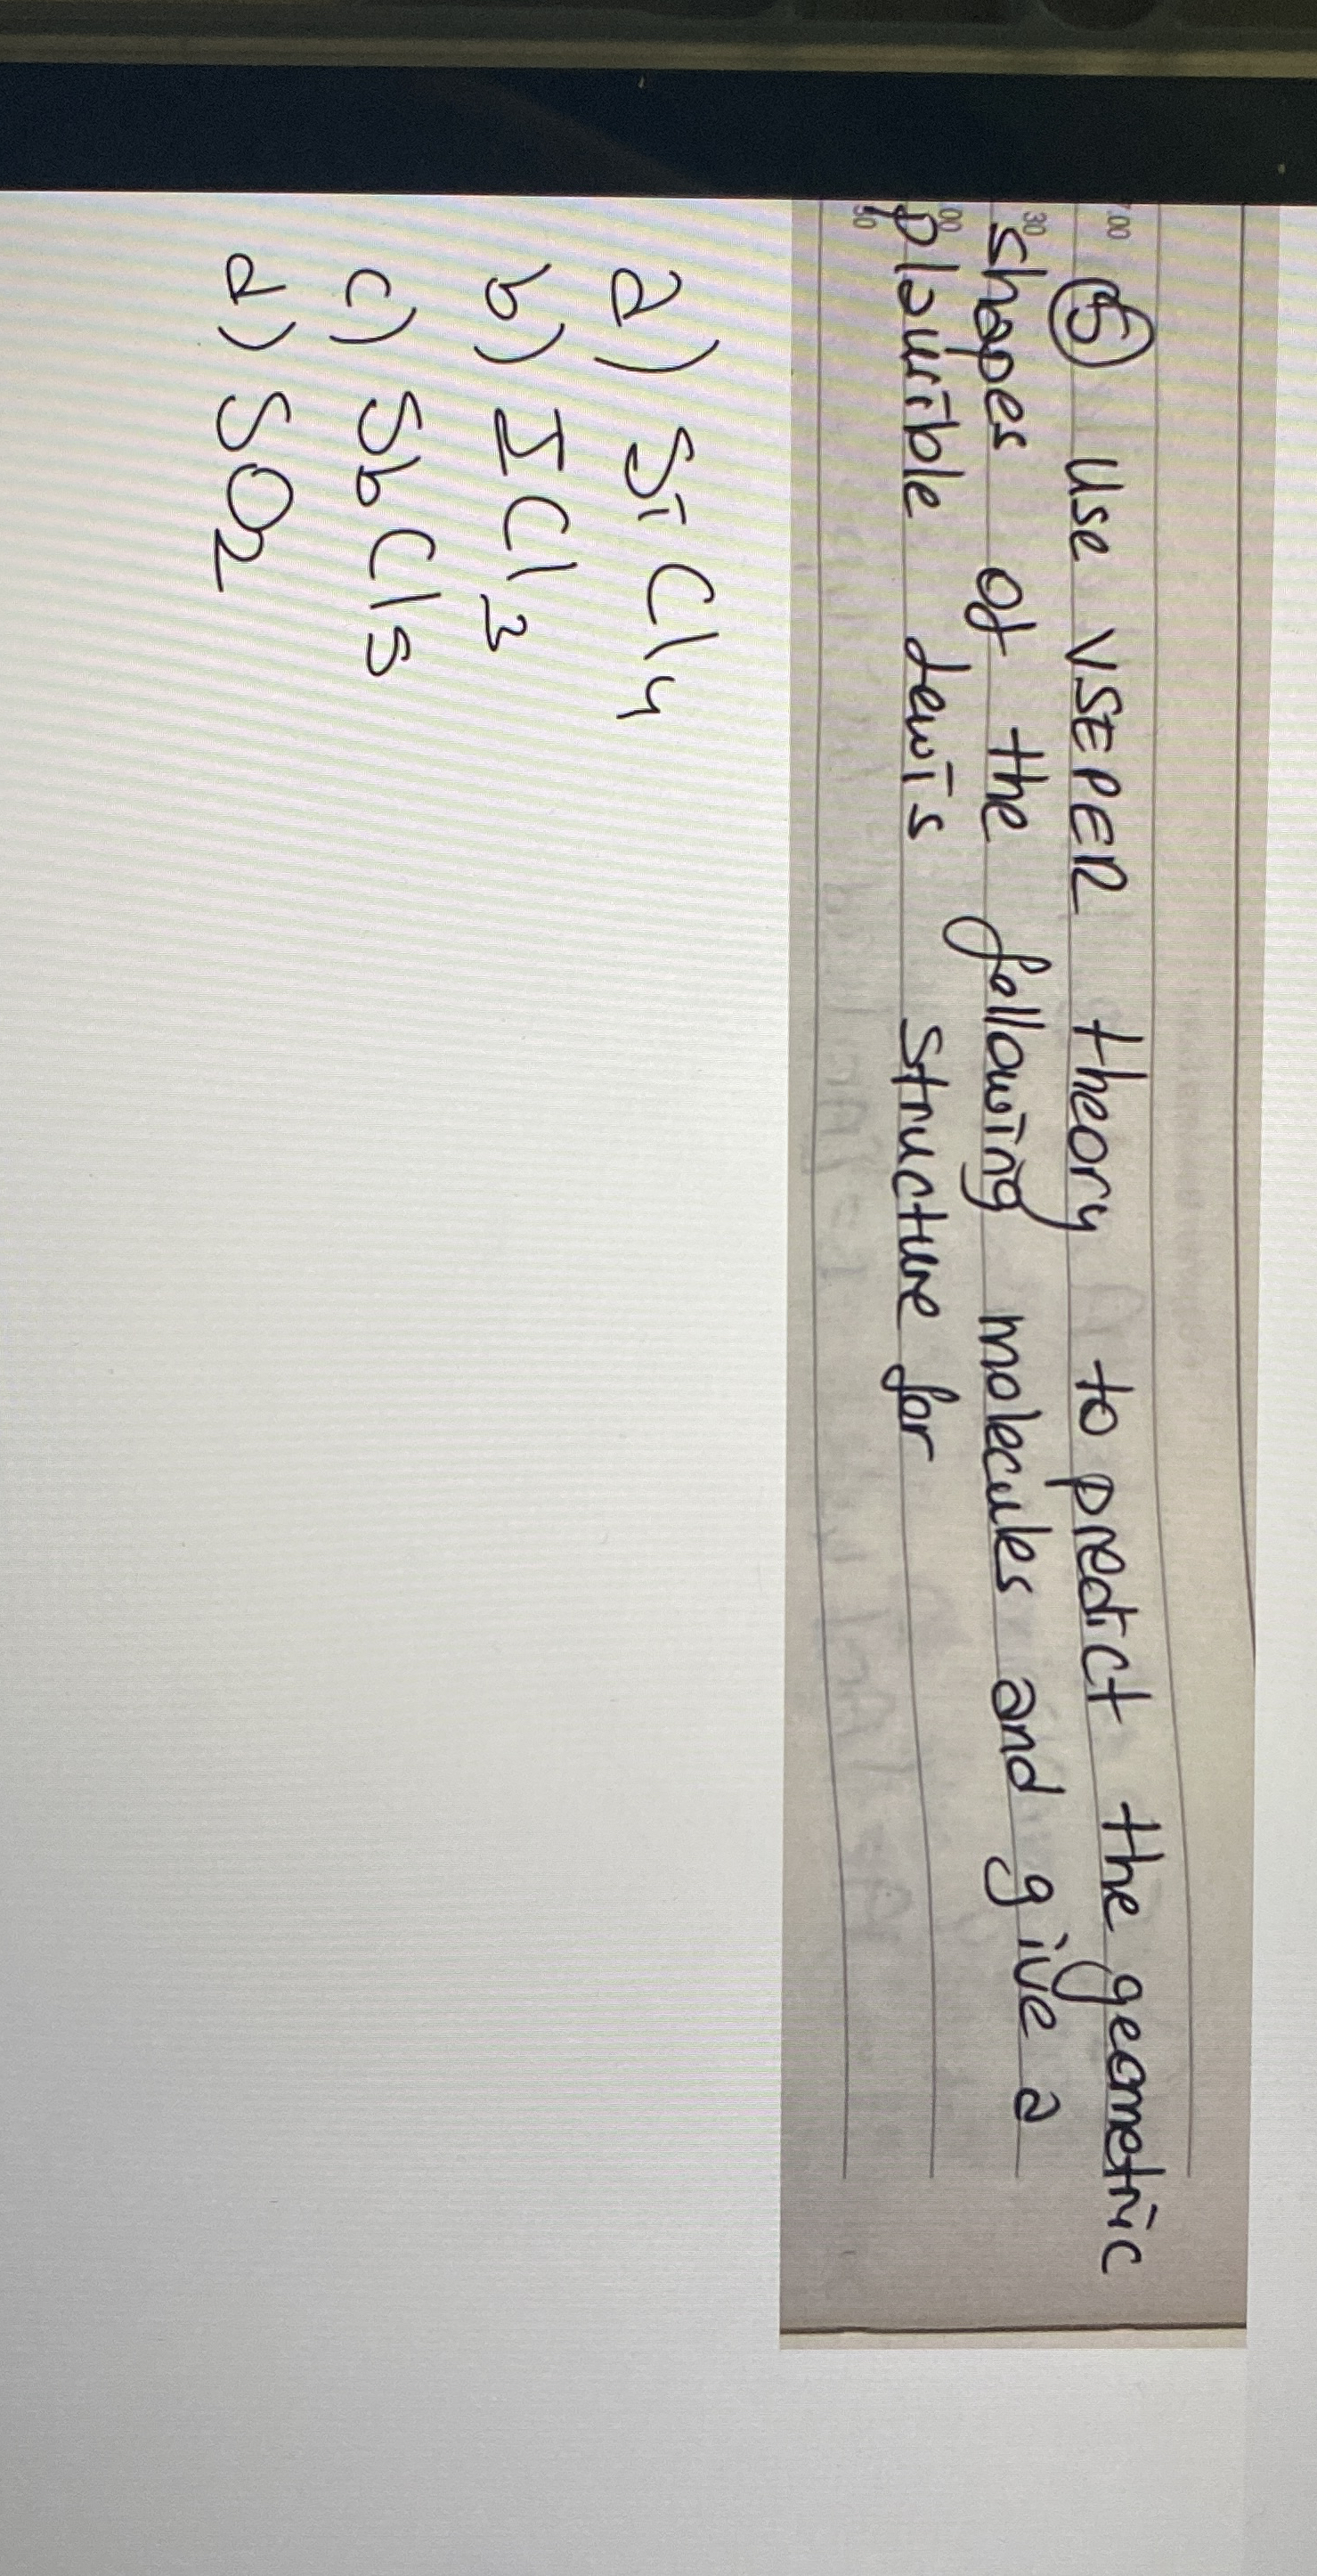 7.00 ⑤ Use VSEPER theory to predict the geometric
30 shapes of the following molecules and give a
00 plausible Lewis structure for
30
a) SiCl4
b) ICl3
c) SbCl5
d) SO2